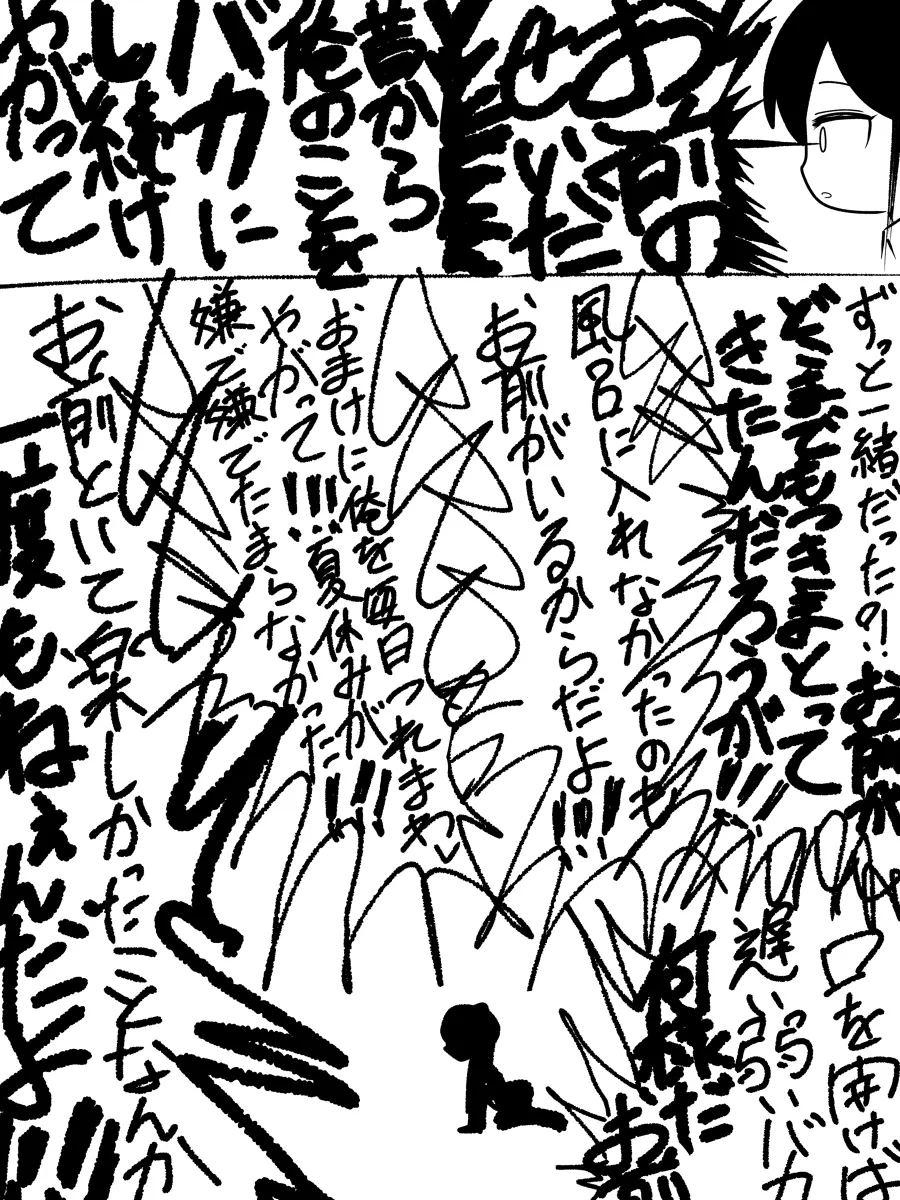 お前の
せいだ
昔から
俺のことを
バカに
し続け
やがって
ずっと一緒だった?!お前が
どこまでもつきまとって
きたんだろうが!!!
風呂に入れなかったのも
お前がいるからだよ!!!!
俺を毎日つれまわし
おまけに
やがって!!!!夏休みが
嫌で嫌でたまらなかった!!!!
お前といて楽しかったことなんか
一度もねぇんだよ!!!
口を開けば
遅い弱いバカ
何様だ
お前